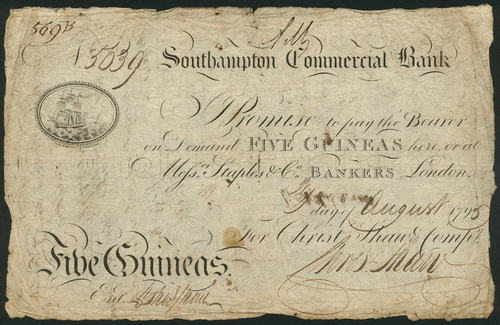 569B
3639
Southampton Commercial Bank
I Promise to pay the Bearer
on Demand FIVE GUINEAS here, or at
Messrs. Staples & Co. BANKERS London,
day of August 1795
For Christr. Shaw & Compy.
Five Guineas.
Entd.